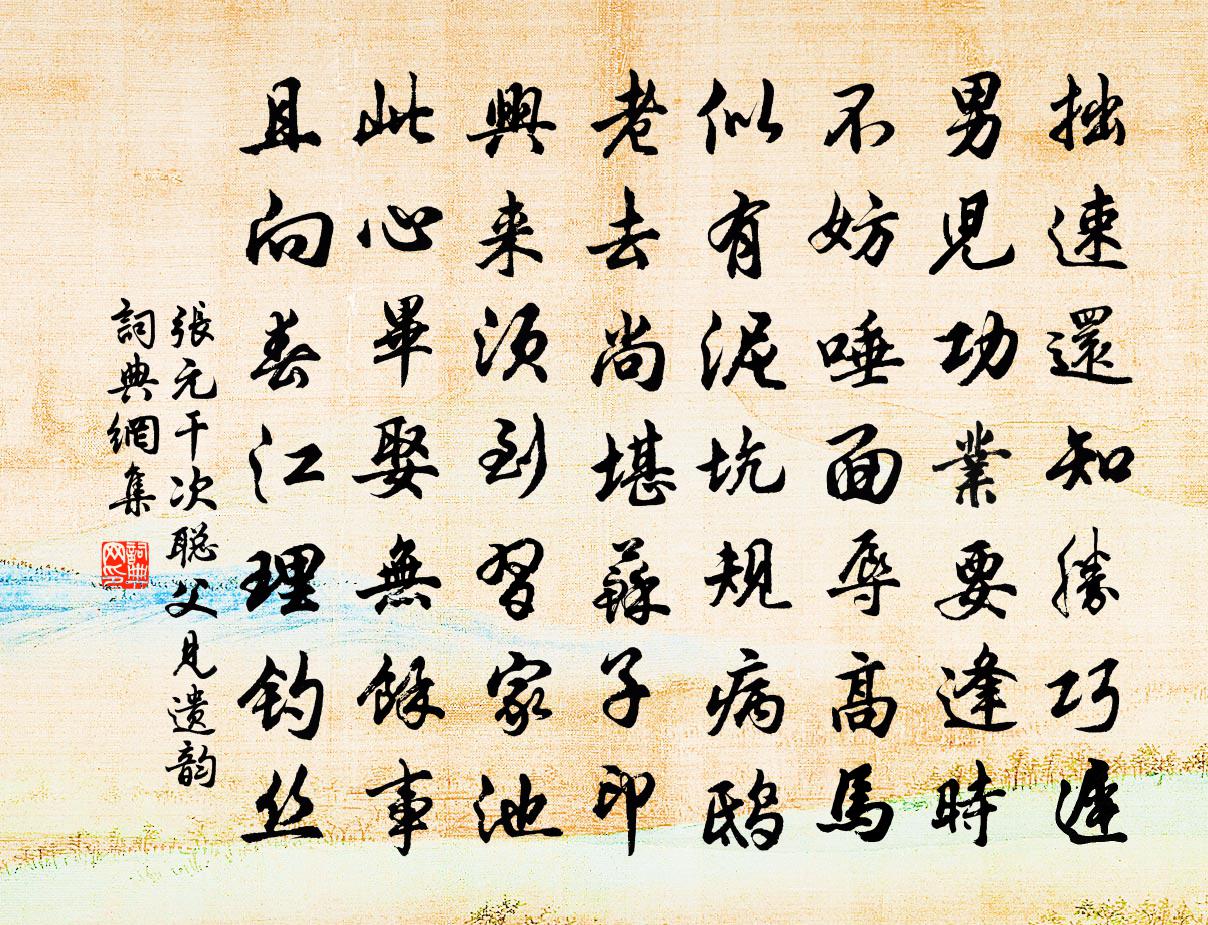 拙速還知勝巧遲
男児功業要逢時
不妨唾面辱高馬
似有泥坑規病鴟
老去尚堪蘇子印
興来須到習家池
此心畢娶無餘事
且向春江理釣丝
張元干次聪父見遗韵
詞典網集
詞典网印